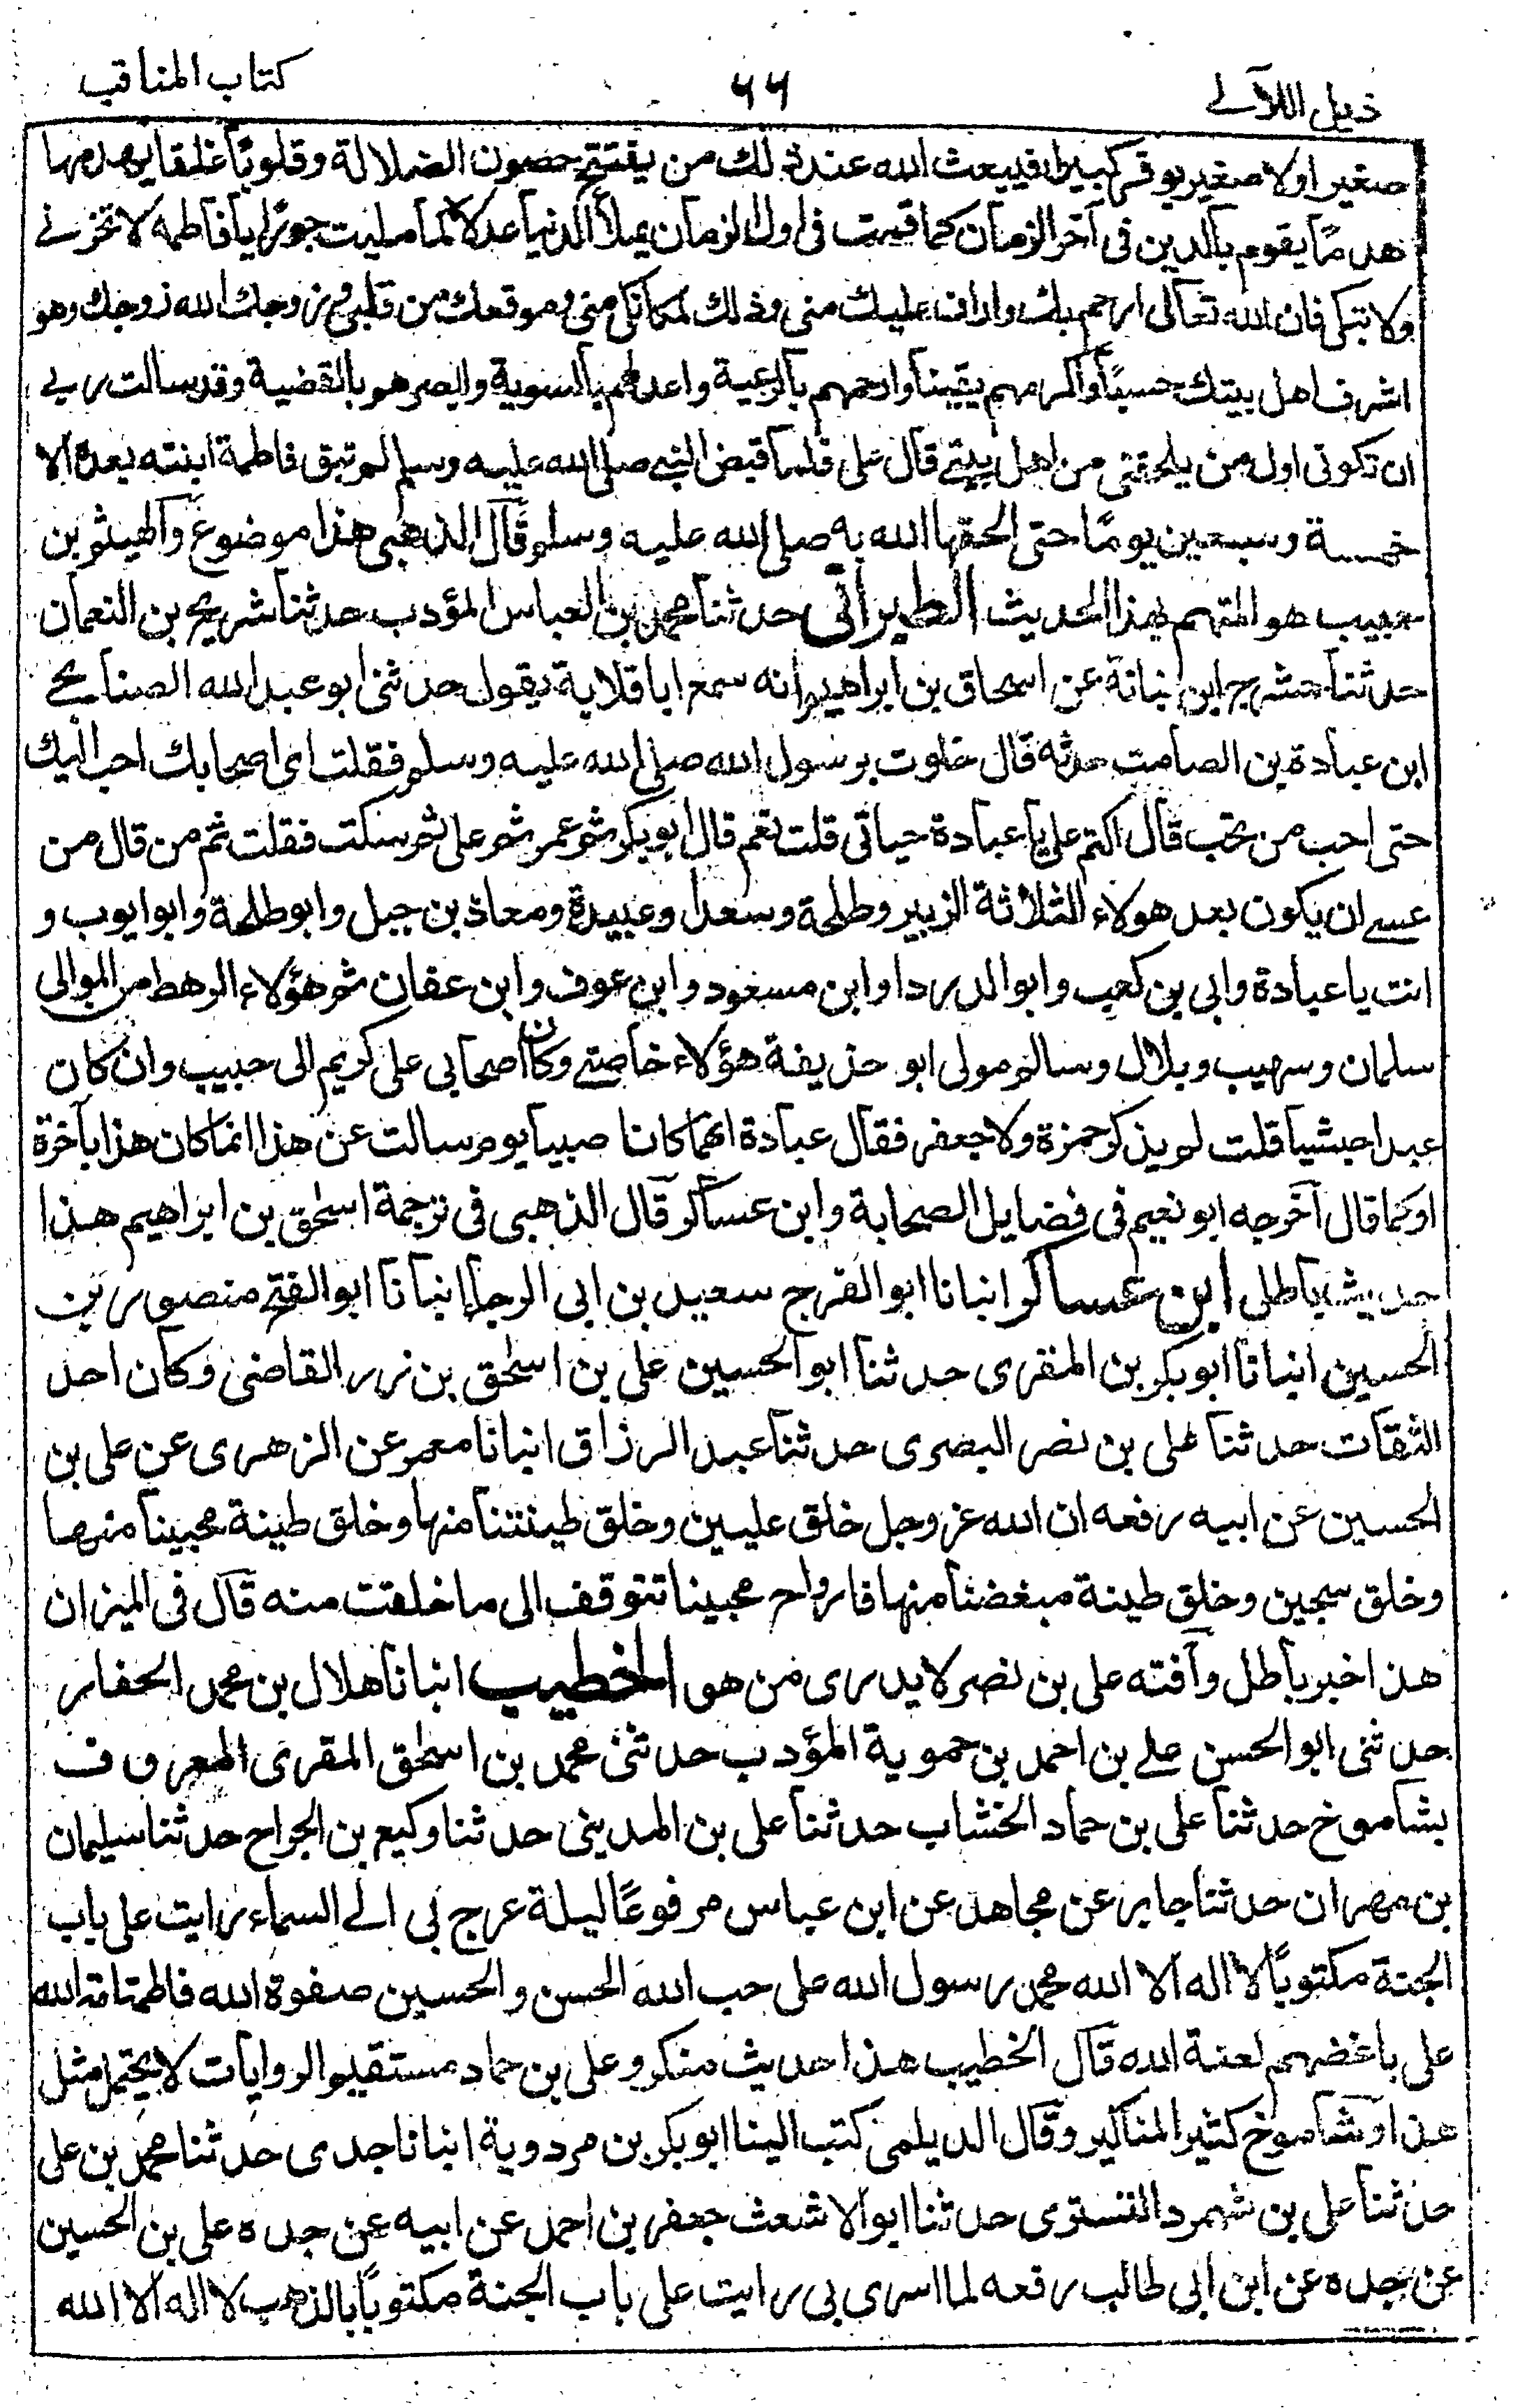 ذيل اللآلے ٦٦ كتاب المناقب
صغيرا ولا صغير يوقر كبيرا فيبعث الله عند ذلك من يفتتح حصون الضلالة وقلوبًا غلقا يهدمها
هدمًا يقوم بالدين فى آخر الزمان كما قمت فى اول الزمان يملأ الدنيا عدلا كما ملئت جورًا يا فاطمة لا تحزنے
ولا تبكى فان الله تعالى ارحم بك واراف عليك منى وذلك لمكانك منى وموقعك من قلبى وزوجك الله زوجك وهو
اشرف اهل بيتك حسبًا واكرمهم يقينا وارحمهم بالرعية واعدلهم بالسوية وابصرهم بالقضية وقد سالت ربے
ان تكونى اول من يلحقنى من اهل بيتے قال على فلما قبض النبے صلى الله عليه وسلم لم تبق فاطمة ابنته بعده الا
خمسة وسبعين يومًا حتى الحقها الله به صلى الله عليه وسلم قال الذهبى هذا موضوع والهيثم بن
حبيب هو المتهم بهذا الحديث الطبرانى حدثنا محمد بن العباس المؤدب حدثنا شريح بن النعمان
حدثنا حشرج ابن نباتة عن اسحاق بن ابراهيم انه سمع ابا قلابة يقول حدثنى ابو عبد الله الصنابحے
ابن عبادة بن الصامت حدثه قال خلوت برسول الله صلى الله عليه وسلم فقلت اى اصحابك احب اليك
حتى احب من تحب قال اكتم على يا عبادة حياتى قلت نعم قال ابو بكر ثم عمر ثم على ثم سكت فقلت ثم من قال من
عسے ان يكون بعد هولاء الثلاثة الزبير وطلحة وسعد وعبيدة ومعاذ بن جبل وابو طلحة وابو ايوب و
انت يا عبادة وابى بن كعب وابو الدردا وابن مسعود وابن عوف وابن عفان ثم هؤلاء الرهط من الموالى
سلمان وسهيب وبلال وسالم مولى ابو حذيفة هؤلاء خاصتے وكان اصحابى على كريم الى حبيب وان كان
عبدا حبشيا قلت لم يذكر حمزة ولا جعفر فقال عبادة انهما كانا صيبا يوم سالت عن هذا انما كان هذا بآخرة
او كما قال اخرجه ابو نعيم فى فضايل الصحابة وابن عساكر قال الذهبى فى ترجمة اسحق بن ابراهيم هذا
حديث باطل ابن عساكر انبانا ابو الفرج سعيد بن ابى الرجا انبانا ابو الفتح منصور بن
الحسين انبانا ابو بكر بن المقرى حدثنا ابو الحسين على بن اسحق بن زرر القاضى وكان احد
الثقات حدثنا على بن نصر البصرى حدثنا عبد الرزاق انبانا معمر عن الزهرى عن على بن
الحسين عن ابيه رفعه ان الله عز وجل خلق عليين وخلق طينتنا منها وخلق طينة محبينا منها
وخلق سجين وخلق طينة مبغضنا منها فارواح محبينا تتوقف الى ما خلقت منه قال فى الميزان
هذا خبر باطل وآفته على بن نصر لا يدرى من هو الخطيب انبانا هلال بن محمد الحفار
حدثنى ابو الحسن علے بن احمد بن حموية المؤدب حدثنى محمد بن اسحق المقرى المعروف
بشاموخ حدثنا على بن حماد الخشاب حدثنا على بن المدينى حدثنا وكيع بن الجراح حدثنا سليمان
بن مهران حدثنا جابر عن مجاهد عن ابن عباس مرفوعًا ليلة عرج بى الے السماء رايت على باب
الجنة مكتوبًا لا اله الا الله محمد رسول الله على حب الله الحسن والحسين صفوة الله فاطمة امة الله
على باغضهم لعنة الله قال الخطيب هذا حديث منكر وعلى بن حماد مستقيم الروايات لا يحتمل مثل
هذا وشاموخ كثير المناكير وقال الديلمى كتب الينا ابو بكر بن مردوية انبانا جدى حدثنا محمد بن على
حدثنا على بن شهمرد التسترى حدثنا ابو الاشعث جعفر بن احمد عن ابيه عن جده على بن الحسين
عن جده عن ابن ابى طالب رفعه لما اسرى بى رايت على باب الجنة مكتوبًا بالذهب لا اله الا الله